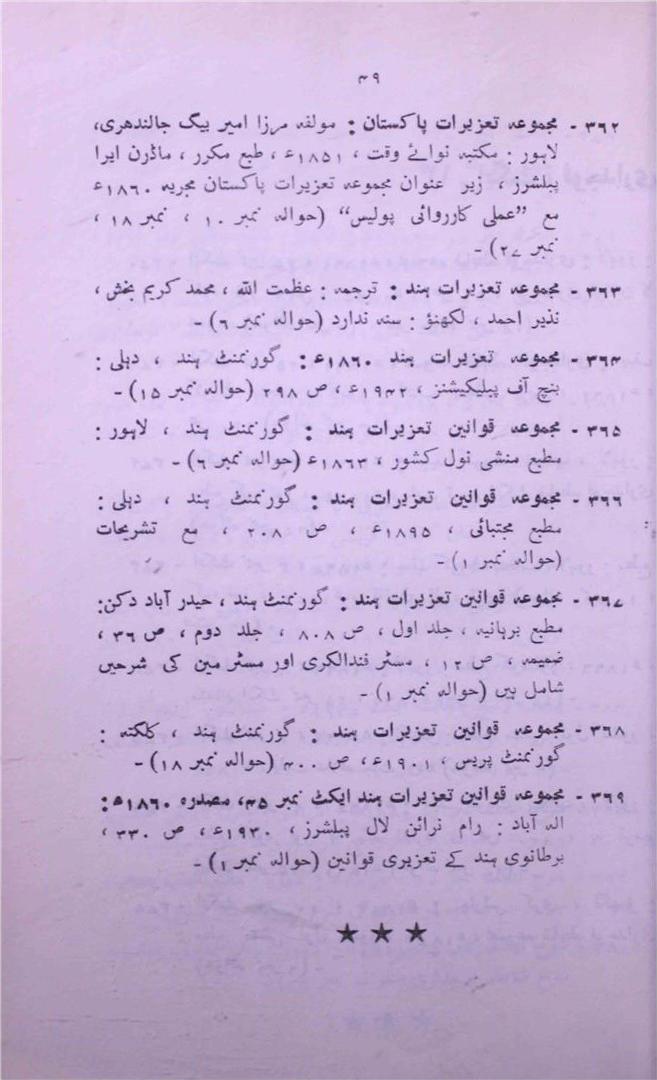 ۴۹
۳۶۲ - مجموعہ تعزیرات پاکستان : مولفہ مرزا امیر بیگ جالندھری،
لاہور : مکتبہ نوائے وقت ، ۱۸۵۱ء ، طبع مکرر ، ماڈرن ایرا
پبلشرز ، زیر عنوان مجموعہ تعزیرات پاکستان مجریہ ۱۸۶۰ء
مع ”عملی کارروائی پولیس“ (حوالہ نمبر ۱۰ ، نمبر ۱۸ ،
نمبر ۲۷) -
۳۶۳ - مجموعہ تعزیرات ہند : ترجمہ : عظمت اللہ ، محمد کریم بخش ،
نذیر احمد ، لکھنؤ : سنہ ندارد (حوالہ نمبر ۶) -
۳۶۴ - مجموعہ تعزیرات ہند ۱۸۶۰ء : گورنمنٹ ہند ، دہلی :
بنچ آف پبلیکیشنز ، ۱۹۴۲ء ، ص ۲۹۸ (حوالہ نمبر ۱۵) -
۳۶۵ - مجموعہ قوانین تعزیرات ہند : گورنمنٹ ہند ، لاہور :
مطبع منشی نول کشور ، ۱۸۶۳ء (حوالہ نمبر ۶) -
۳۶۶ - مجموعہ قوانین تعزیرات ہند : گورنمنٹ ہند ، دہلی :
مطبع مجتبائی ، ۱۸۹۵ء ، ص ۲۰۸ - مع تشریحات
(حوالہ نمبر ۱) -
۳۶۷ - مجموعہ قوانین تعزیرات ہند : گورنمنٹ ہند ، حیدر آباد دکن:
مطبع برہانیہ ، جلد اول ، ص ۸۰۸ ، جلد دوم ، ص ۳۶ ،
ضمیمہ ، ص ۱۲ ، مسٹر فندالکری اور مسٹر مین کی شرحیں
شامل ہیں (حوالہ نمبر ۱) -
۳۶۸ - مجموعہ قوانین تعزیرات ہند : گورنمنٹ ہند ، کلکتہ :
گورنمنٹ پریس ، ۱۹۰۱ء ، ص ۴۰۰ (حوالہ نمبر ۱۸) -
۳۶۹ - مجموعہ قوانین تعزیرات ہند ایکٹ نمبر ۴۵، مصدرہ ۱۸۶۰ء:
الہ آباد : رام نرائن لال پبلشرز ، ۱۹۳۰ء ، ص ۳۳۰ ،
برطانوی ہند کے تعزیری قوانین (حوالہ نمبر ۱) -
★ ★ ★